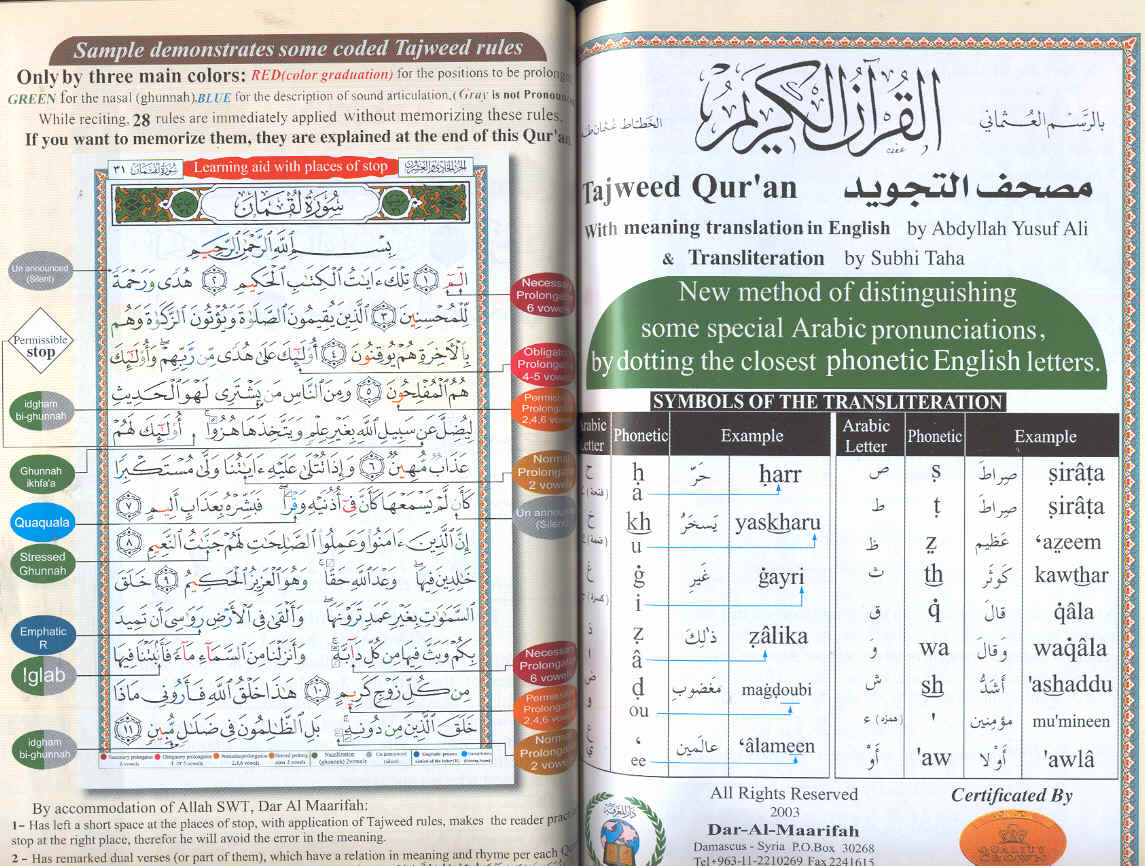 Sample demonstrates some coded Tajweed rules
Only by three main colors: RED(color graduation) for the positions to be prolonged
GREEN for the nasal (ghunnah).BLUE for the description of sound articulation,(Gray is not Pronoun
While reciting, 28 rules are immediately applied without memorizing these rules.
If you want to memorize them, they are explained at the end of this Qur'an
سورة لقمان ٣١
Learning aid with places of stop
الجزء الحادي والعشرون
سُورَةُ لُقْمَان
بِسْمِ اللَّهِ الرَّحْمَٰنِ الرَّحِيمِ
الٓمٓ ١ تِلْكَ ءَايَٰتُ ٱلْكِتَٰبِ ٱلْحَكِيمِ ٢ هُدًى وَرَحْمَةً
لِّلْمُحْسِنِينَ ٣ ٱلَّذِينَ يُقِيمُونَ ٱلصَّلَوٰةَ وَيُؤْتُونَ ٱلزَّكَوٰةَ وَهُم
بِٱلْءَاخِرَةِ هُمْ يُوقِنُونَ ٤ أُو۟لَٰٓئِكَ عَلَىٰ هُدًى مِّن رَّبِّهِمْ وَأُو۟لَٰٓئِكَ
هُمُ ٱلْمُفْلِحُونَ ٥ وَمِنَ ٱلنَّاسِ مَن يَشْتَرِى لَهْوَ ٱلْحَدِيثِ
لِيُضِلَّ عَن سَبِيلِ ٱللَّهِ بِغَيْرِ عِلْمٍ وَيَتَّخِذَهَا هُزُوًا أُو۟لَٰٓئِكَ لَهُمْ
عَذَابٌ مُّهِينٌ ٦ وَإِذَا تُتْلَىٰ عَلَيْهِ ءَايَٰتُنَا وَلَّىٰ مُسْتَكْبِرًا
كَأَن لَّمْ يَسْمَعْهَا كَأَنَّ فِىٓ أُذُنَيْهِ وَقْرًا فَبَشِّرْهُ بِعَذَابٍ أَلِيمٍ ٧
إِنَّ ٱلَّذِينَ ءَامَنُوا۟ وَعَمِلُوا۟ ٱلصَّٰلِحَٰتِ لَهُمْ جَنَّٰتُ ٱلنَّعِيمِ ٨
خَٰلِدِينَ فِيهَا وَعْدَ ٱللَّهِ حَقًّا وَهُوَ ٱلْعَزِيزُ ٱلْحَكِيمُ ٩ خَلَقَ
ٱلسَّمَٰوَٰتِ بِغَيْرِ عَمَدٍ تَرَوْنَهَا وَأَلْقَىٰ فِى ٱلْأَرْضِ رَوَٰسِىَ أَن تَمِيدَ
بِكُمْ وَبَثَّ فِيهَا مِن كُلِّ دَآبَّةٍ وَأَنزَلْنَا مِنَ ٱلسَّمَآءِ مَآءً فَأَنۢبَتْنَا فِيهَا
مِن كُلِّ زَوْجٍ كَرِيمٍ ١٠ هَٰذَا خَلْقُ ٱللَّهِ فَأَرُونِى مَاذَا
خَلَقَ ٱلَّذِينَ مِن دُونِهِۦ بَلِ ٱلظَّٰلِمُونَ فِى ضَلَٰلٍ مُّبِينٍ ١١
Un announced
(Silent)
Permissible
stop
idgham
bi-ghunnah
Ghunnah
ikhfa'a
Quaquala
Stressed
Ghunnah
Emphatic
R
Iglab
idgham
bi-ghunnah
Necessary
Prolongation
6 vowels
Obligatory
Prolongation
4-5 vowels
Permissible
Prolongation
2,4,6 vowels
Normal
Prolongation
2 vowels
Un announced
(Silent)
Necessary
Prolongation
6 vowels
Permissible
Prolongation
2,4,6 vowels
Normal
Prolongation
2 vowels
By accommodation of Allah SWT, Dar Al Maarifah:
1– Has left a short space at the places of stop, with application of Tajweed rules, makes the reader pract
stop at the right place, therefor he will avoid the error in the meaning.
2 – Has remarked dual verses (or part of them), which have a relation in meaning and rhyme per each
القرآن الكريم
بالرسم العثماني
الخطاط عثمان طه
Tajweed Qur'an مصحف التجويد
With meaning translation in English by Abdyllah Yusuf Ali
& Transliteration by Subhi Taha
New method of distinguishing
some special Arabic pronunciations,
by dotting the closest phonetic English letters.
SYMBOLS OF THE TRANSLITERATION
Arabic Letter Phonetic Example Arabic Letter Phonetic Example
ح ḥ حَرّ ḥarr ص ṣ صِراطَ ṣirâṭa
a
خ kh يَسخَرُ yaskharu ط ṭ صِراطَ ṣirâṭa
u
غ ġ غَيرِ ġayri ظ ẓ عَظيم ‘aẓeem
i
ذ ẓ ذٰلِكَ ẓâlika ث th كَوثَر kawthar
ا â
ق q̇ قالَ q̇âla
ض ḍ مَغضوبِ maġdoubi وَ wa وَقالَ waq̇âla
ou
ش sh أَشَدُّ 'ashaddu
ع ‘ عالَمين ‘âlameen ء (همزة) ' مؤمنين mu'mineen
ي ee
أَوْ 'aw أَوْلا 'awlâ
All Rights Reserved
2003
Dar-Al-Maarifah
Damascus - Syria P.O.Box 30268
Tel+963-11-2210269 Fax 2241615
Certificated By
دار المعرفة
QUALITY
CROWN